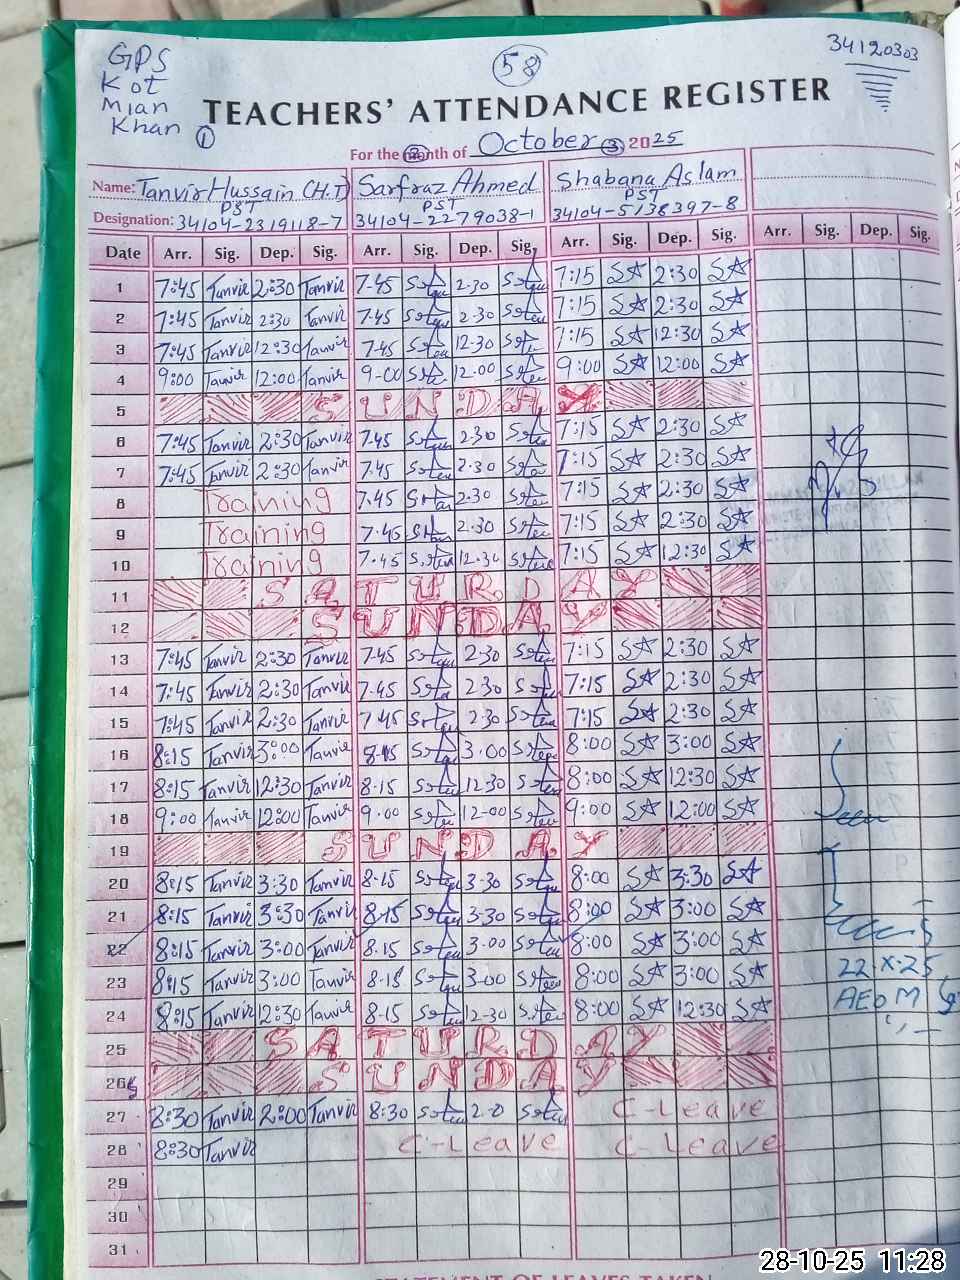 GPS
Kot
Mian
Khan
①
58
34120303
TEACHERS' ATTENDANCE REGISTER
For the month of October 2025
② ③
Name: Tanvir Hussain (H.T) Sarfraz Ahmed Shabana Aslam
PST PST PST
Designation: 34104-2319118-7 34104-2279038-1 34104-5138397-8
Date Arr. Sig. Dep. Sig. Arr. Sig. Dep. Sig. Arr. Sig. Dep. Sig. Arr. Sig. Dep. Sig.
1 7:45 Tanvir 2:30 Tanvir 7-45 2-30 7:15 2:30
2 7:45 Tanvir 2:30 Tanvir 7-45 2-30 7:15 2:30
3 7:45 Tanvir 12:30 Tanvir 7-45 12-30 7:15 12:30
4 9:00 Tanvir 12:00 Tanvir 9-00 12-00 9:00 12:00
5 SUNDAY
6 7:45 Tanvir 2:30 Tanvir 7-45 2-30 7:15 2:30
7 7:45 Tanvir 2:30 Tanvir 7-45 2-30 7:15 2:30
8 Training 7-45 2-30 7:15 2:30
9 Training 7-45 2-30 7:15 2:30
10 Training 7-45 12-30 7:15 12:30
11 SATURDAY
12 SUNDAY
13 7:45 Tanvir 2:30 Tanvir 7-45 2-30 7:15 2:30
14 7:45 Tanvir 2:30 Tanvir 7-45 2-30 7:15 2:30
15 7:45 Tanvir 2:30 Tanvir 7-45 2-30 7:15 2:30
16 8:15 Tanvir 3:00 Tanvir 8-15 3-00 8:00 3:00
17 8:15 Tanvir 12:30 Tanvir 8-15 12-30 8:00 12:30
18 9:00 Tanvir 12:00 Tanvir 9-00 12-00 9:00 12:00
Seen
19 SUNDAY
20 8:15 Tanvir 3:30 Tanvir 8-15 3-30 8:00 3:30
21 8:15 Tanvir 3:30 Tanvir 8-15 3-30 8:00 3:00
22 8:15 Tanvir 3:00 Tanvir 8-15 3-00 8:00 3:00
22.X.25
23 8:15 Tanvir 3:00 Tanvir 8-15 3-00 8:00 3:00
AEO M
24 8:15 Tanvir 12:30 Tanvir 8-15 12-30 8:00 12:30
25 SATURDAY
26 SUNDAY
27 8:30 Tanvir 2:00 Tanvir 8:30 2-0 C-Leave
28 8:30 Tanvir C-Leave C Leave
29
30
31
STATEMENT OF LEAVES TAKEN
28-10-25 11:28